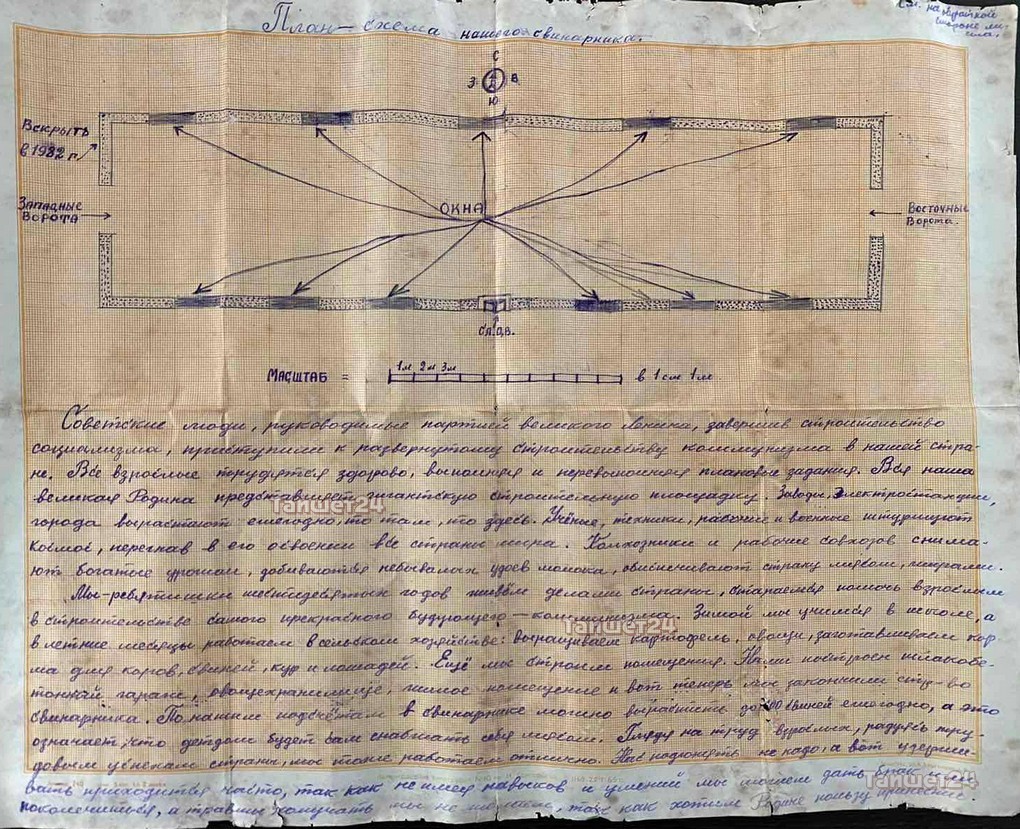 План-схема нашего свинарника.
См. на обратной
стороне ли-
ста.
С
З В
Ю
Вскрыть
в 1982 г.
Западные
ворота
ОКНА
Восточные
ворота.
Масштаб = 1м 2м 3м в 1 см 1 м.
Советские люди, руководимые партией великого Ленина, завершив строительство
социализма, приступили к развернутому строительству коммунизма в нашей стра-
не. Все взрослые трудятся здорово, выполняя и перевыполняя плановые задания. Вся наша
великая Родина представляет гигантскую строительную площадку. Заводы, электростанции,
города вырастают ежегодно, то там, то здесь. Учёные, техники, рабочие и военные штурмуют
космос, перегнав в его освоении все страны мира. Колхозники и рабочие совхозов снима-
ют богатые урожаи, добиваются небывалых удоев молока, обеспечивают страну мясом,
Мы-ребятишки шестидесятых годов живём делами страны, стараемся помочь взрослым
в строительстве самого прекрасного будующего — коммунизма. Зимой мы учимся в школе, а
в летние месяцы работаем в сельском хозяйстве: выращиваем картофель, овощи, заготавливаем кор-
ма для коров, свиней, кур и лошадей. Ещё мы строим помещения. Нами построен шлакобе-
тонный гараж, овощехранилище, жилое помещение и вот теперь мы закончили стр-во
свинарника. По нашим подсчётам в свинарнике можно вырастить до 100 свиней ежегодно, а это
означает, что детдом будет сам снабжать себя мясом. Глядя на труд взрослых, радуясь тру-
довым успехам страны, мы тоже работаем отлично. Нас подгонять не надо, а вот удержи-
вать приходится часто, так как не имея навыков и умений мы можем дать брак и
покалечиться, а травмы получать мы не так как хотим Родине пользу приносить.
Тайшет24
Тайшет24
Тайшет24